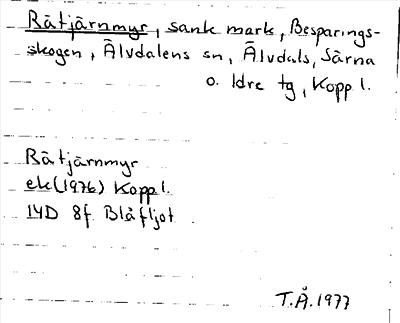 Råtjärnmyr, sank mark, Besparings-
skogen, Älvdalens sn, Älvdals, Särna
o. Idre tg, Kopp l.
Råtjärnmyr
ek(1976) Kopp l.
14D 8f Blåfljot
T.Å.1977